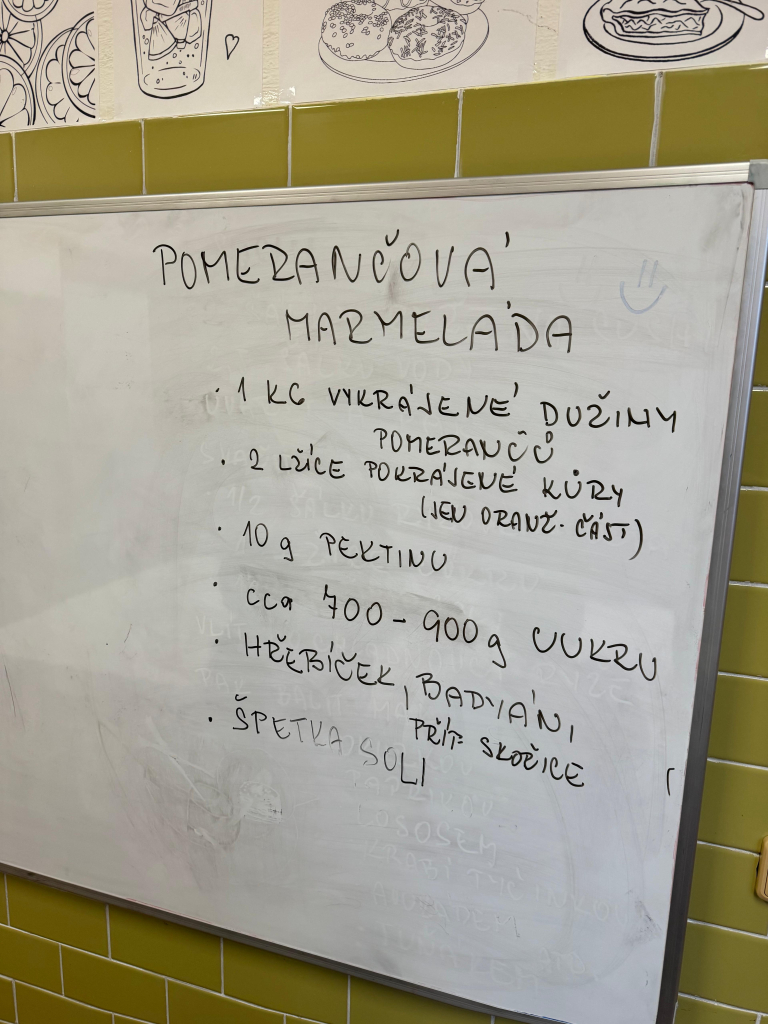 POMERANČOVÁ
MARMELÁDA
· 1 KG VYKRÁJENÉ DUŽINY
POMERANČŮ
· 2 LŽÍCE POKRÁJENÉ KŮRY
(JEN ORANŽ. ČÁST)
· 10 g PEKTINU
· cca 700 - 900 g CUKRU
· HŘEBÍČEK, BADYÁN,
PŘÍP. SKOŘICE
· ŠPETKA SOLI
LOSOSEM